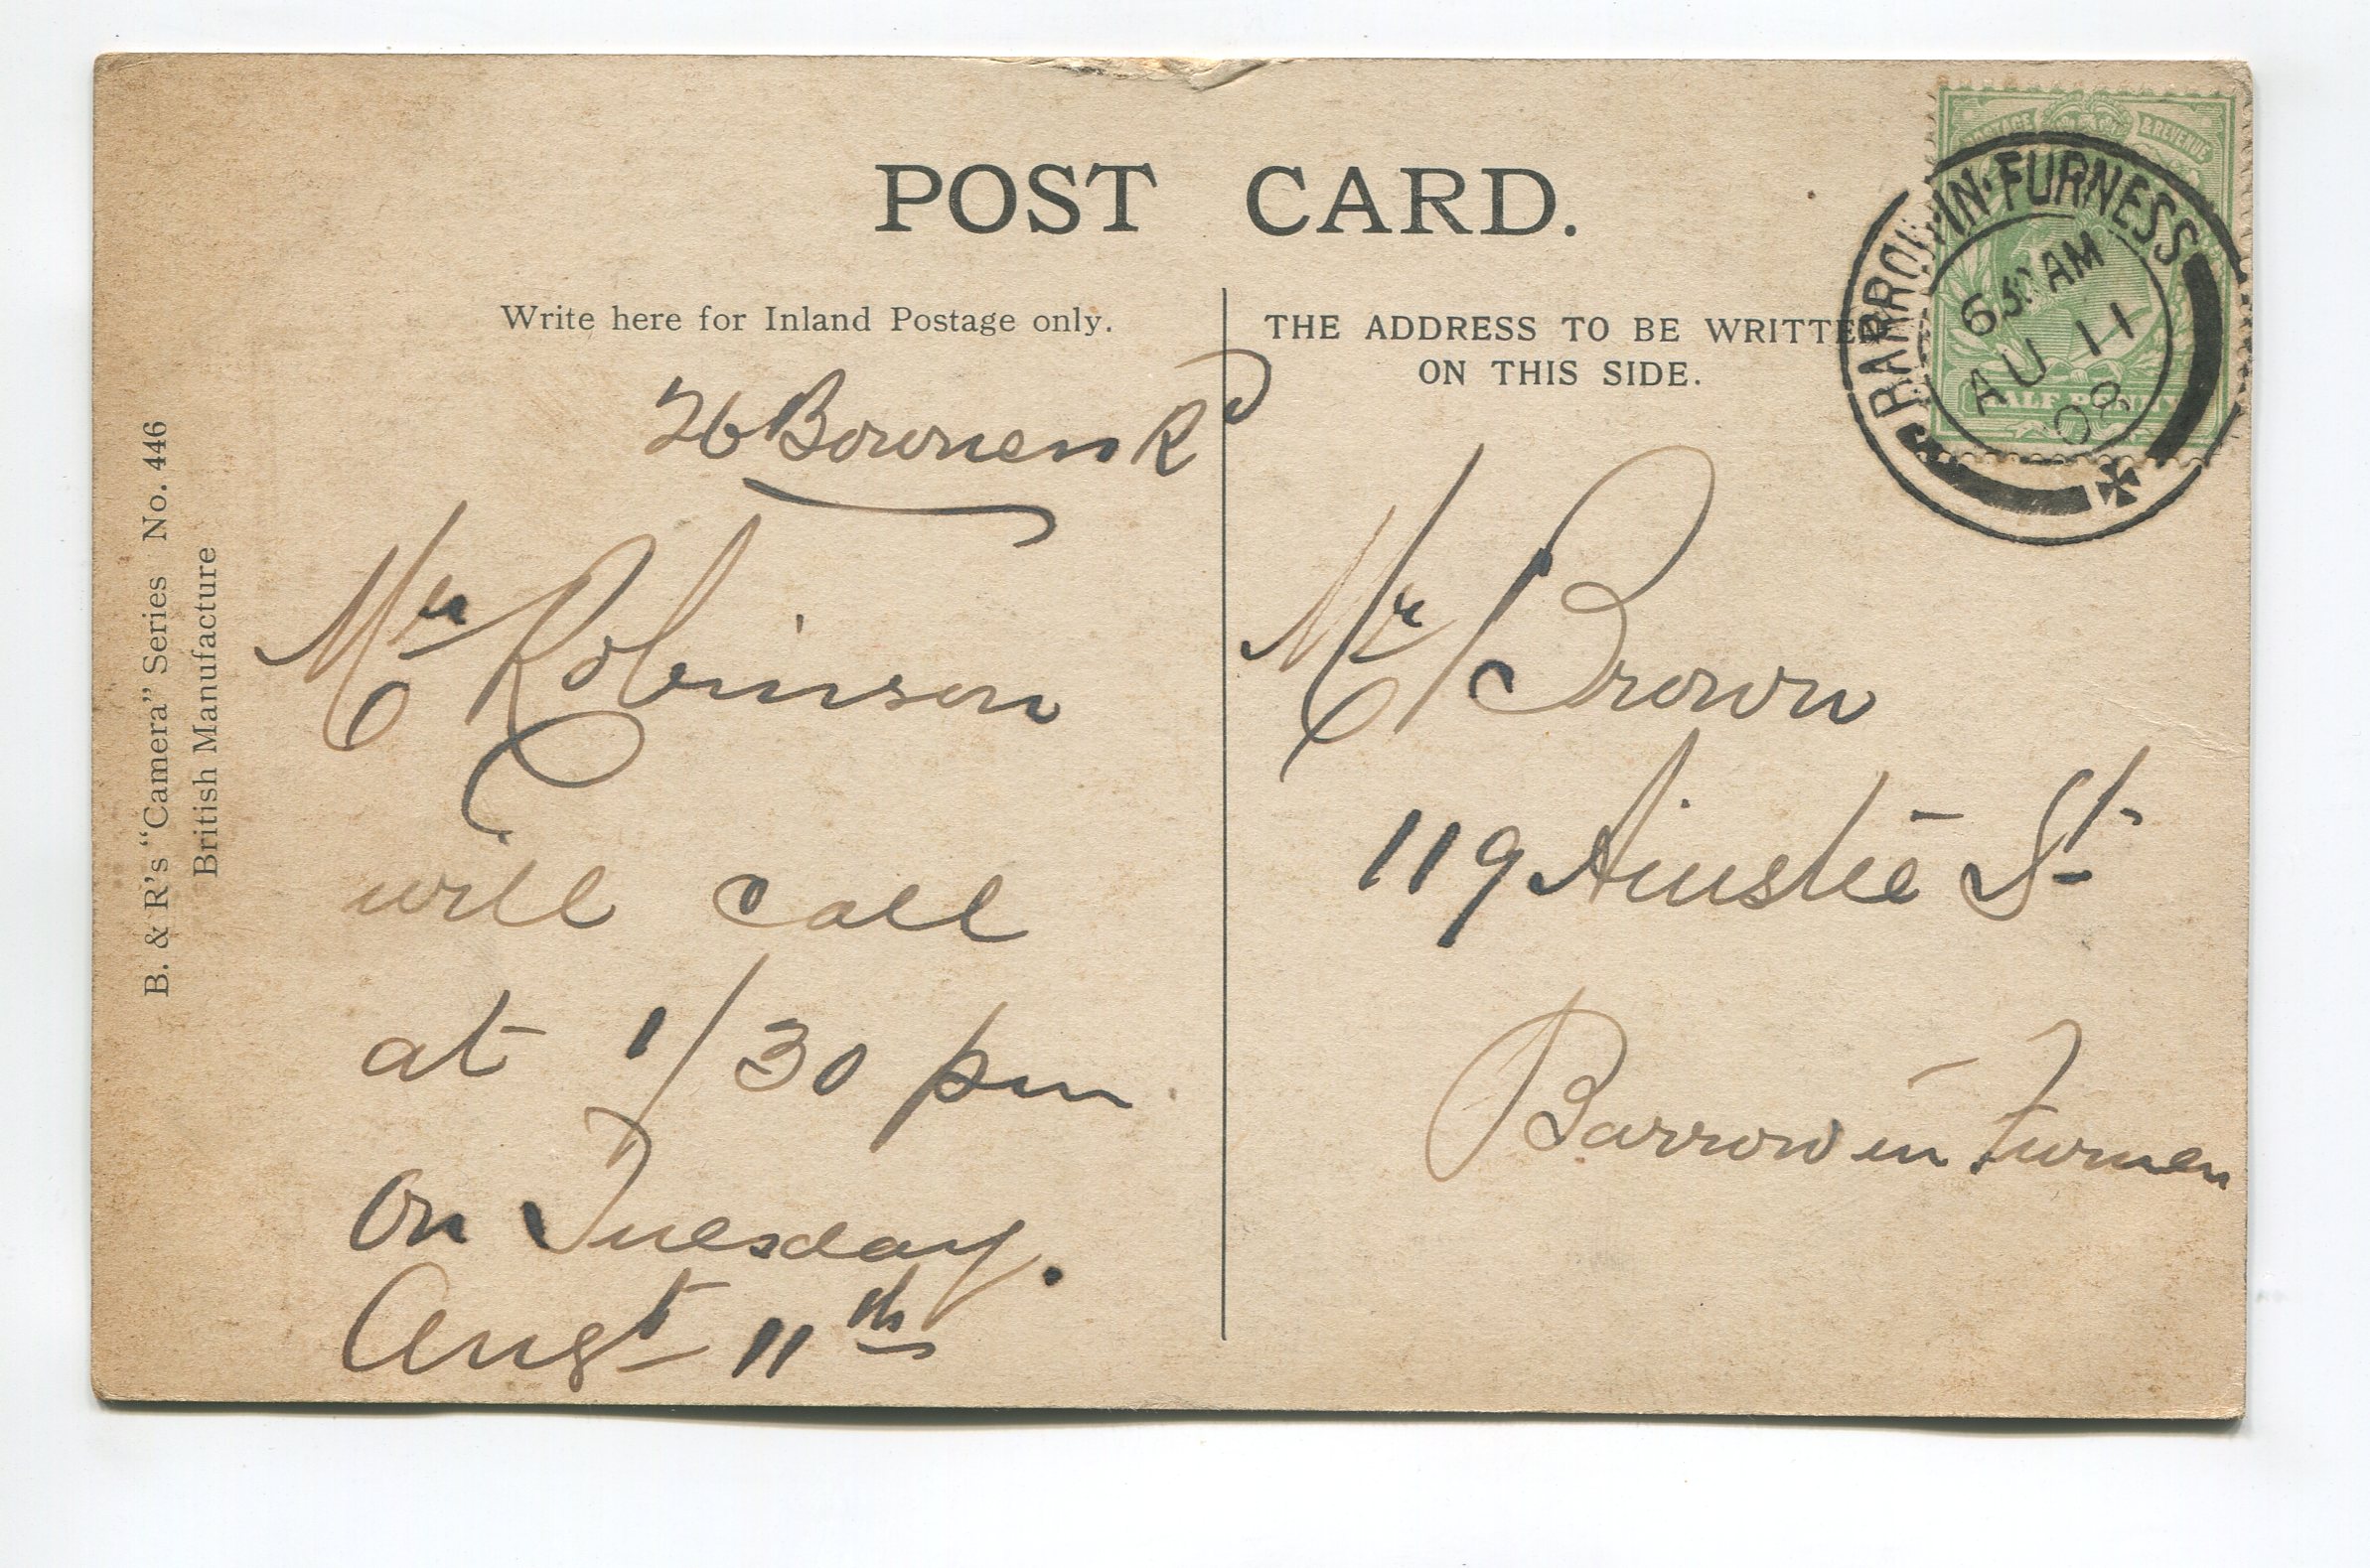 POST CARD.
Write here for Inland Postage only.
THE ADDRESS TO BE WRITTEN
ON THIS SIDE.
POSTAGE & REVENUE
HALF PENNY
BARROW-IN-FURNESS
AM
AU 11
08
B. & R's "Camera" Series No. 446
British Manufacture
26 Rd
Mr Robinson
will call
at 1/30 pm
on Tuesday.
Augt 11th
Mr Brown
119 Ainslie St
Barrow in Furness